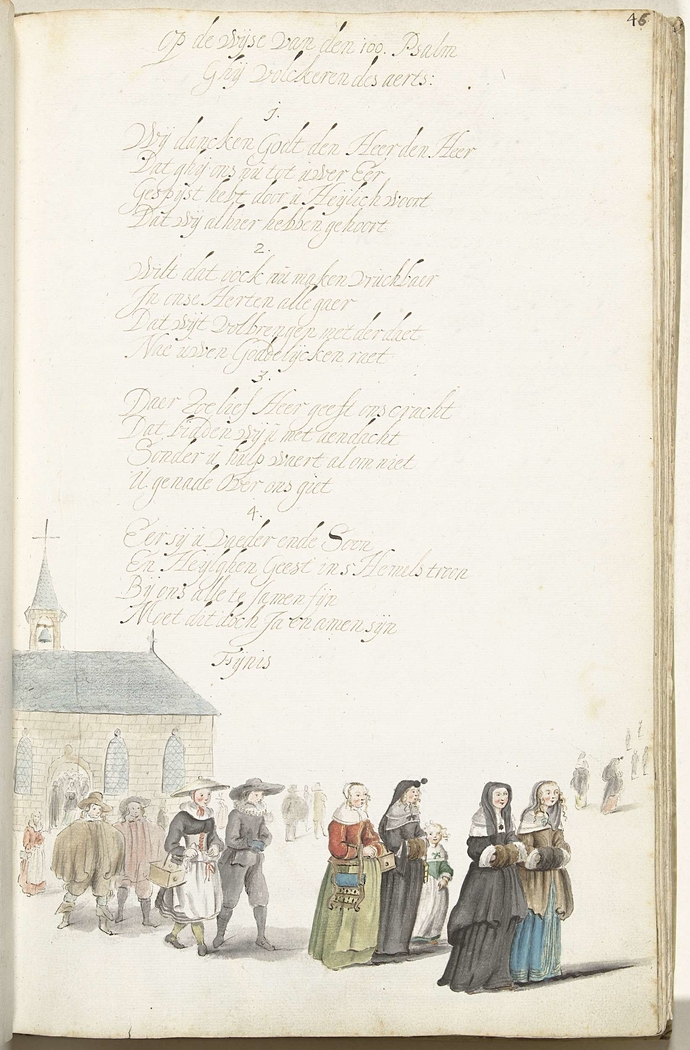 46
Op de wijse van den 100. Psalm
Ghij volckeren des aerts:
1.
Wij dancken Godt den Heer den Heer
Dat ghij ons nu tot uwer Eer
Gespijst hebt door u Heijlich woort
Dat wij alhier hebben gehoort
2.
Wilt dat oock nu maken vruchbaer
In onse Herten alle gaer
Dat wijt volbrengen met der daet
Nae uwen Goddelijcken raet
3.
Daer toe lief Heer geeft ons cracht
Dat bidden wij u met aendacht
Sonder u hulp waert al om niet
U genade over ons giet
4.
Eer sij u vaeder ende Soon
En Heylghen Geest in s Hemels troon
Bij ons alle te samen fijn
Moet dit doch Ja en amen sijn
Fijnis